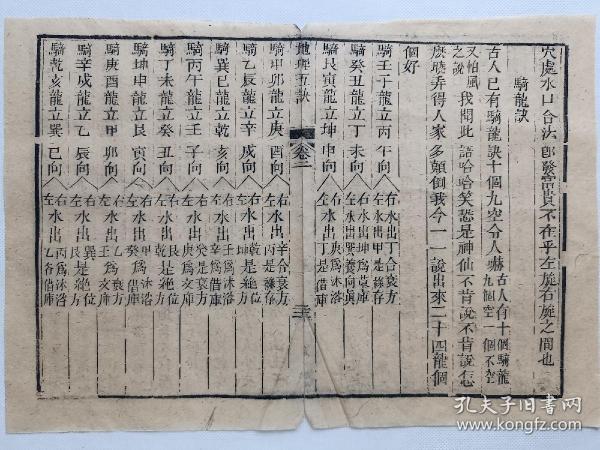 穴處水口合法卽發富貴不在乎左旋右旋之間也
騎龍訣
古人已有騎龍訣十個九空分人嚇
古人有十個騎龍
九個空一個不空
之說
又怕風
我聞此語哈哈笑恐是神仙不肯說不肯說怎
麽曉弄得人家多顛倒我今一一說出來二十四龍個
個好
騎壬子龍立丙午向
右水出丁合衰方
左水出甲是祿存
騎癸丑龍立丁未向
右水出坤爲
左水出巽
騎艮寅龍立坤申向
右水出庚爲沐浴
左水出丁是借庫
地理五訣
卷二
三
騎甲卯龍立庚酉向
右水出辛合衰方
左水出丙是祿存
騎乙辰龍立辛戌向
右水出乾是絕位
左水出坤是絕方
騎巽巳龍立乾亥向
右水出壬爲沐浴
左水出辛爲借庫
騎丙午龍立壬子向
右水出癸是衰方
左水出庚爲文庫
騎丁未龍立癸丑向
右水出艮是絕位
左水出乾是絕方
騎坤申龍立艮寅向
右水出甲爲沐浴
左水出癸爲借庫
騎庚酉龍立甲卯向
右水出乙爲衰方
左水出壬爲文庫
騎辛戌龍立乙辰向
右水出巽是絕位
左水出艮是絕方
騎乾亥龍立巽巳向
右水出丙爲沐浴
左水出乙爲借庫
孔夫子旧书网
www.kongfz.com